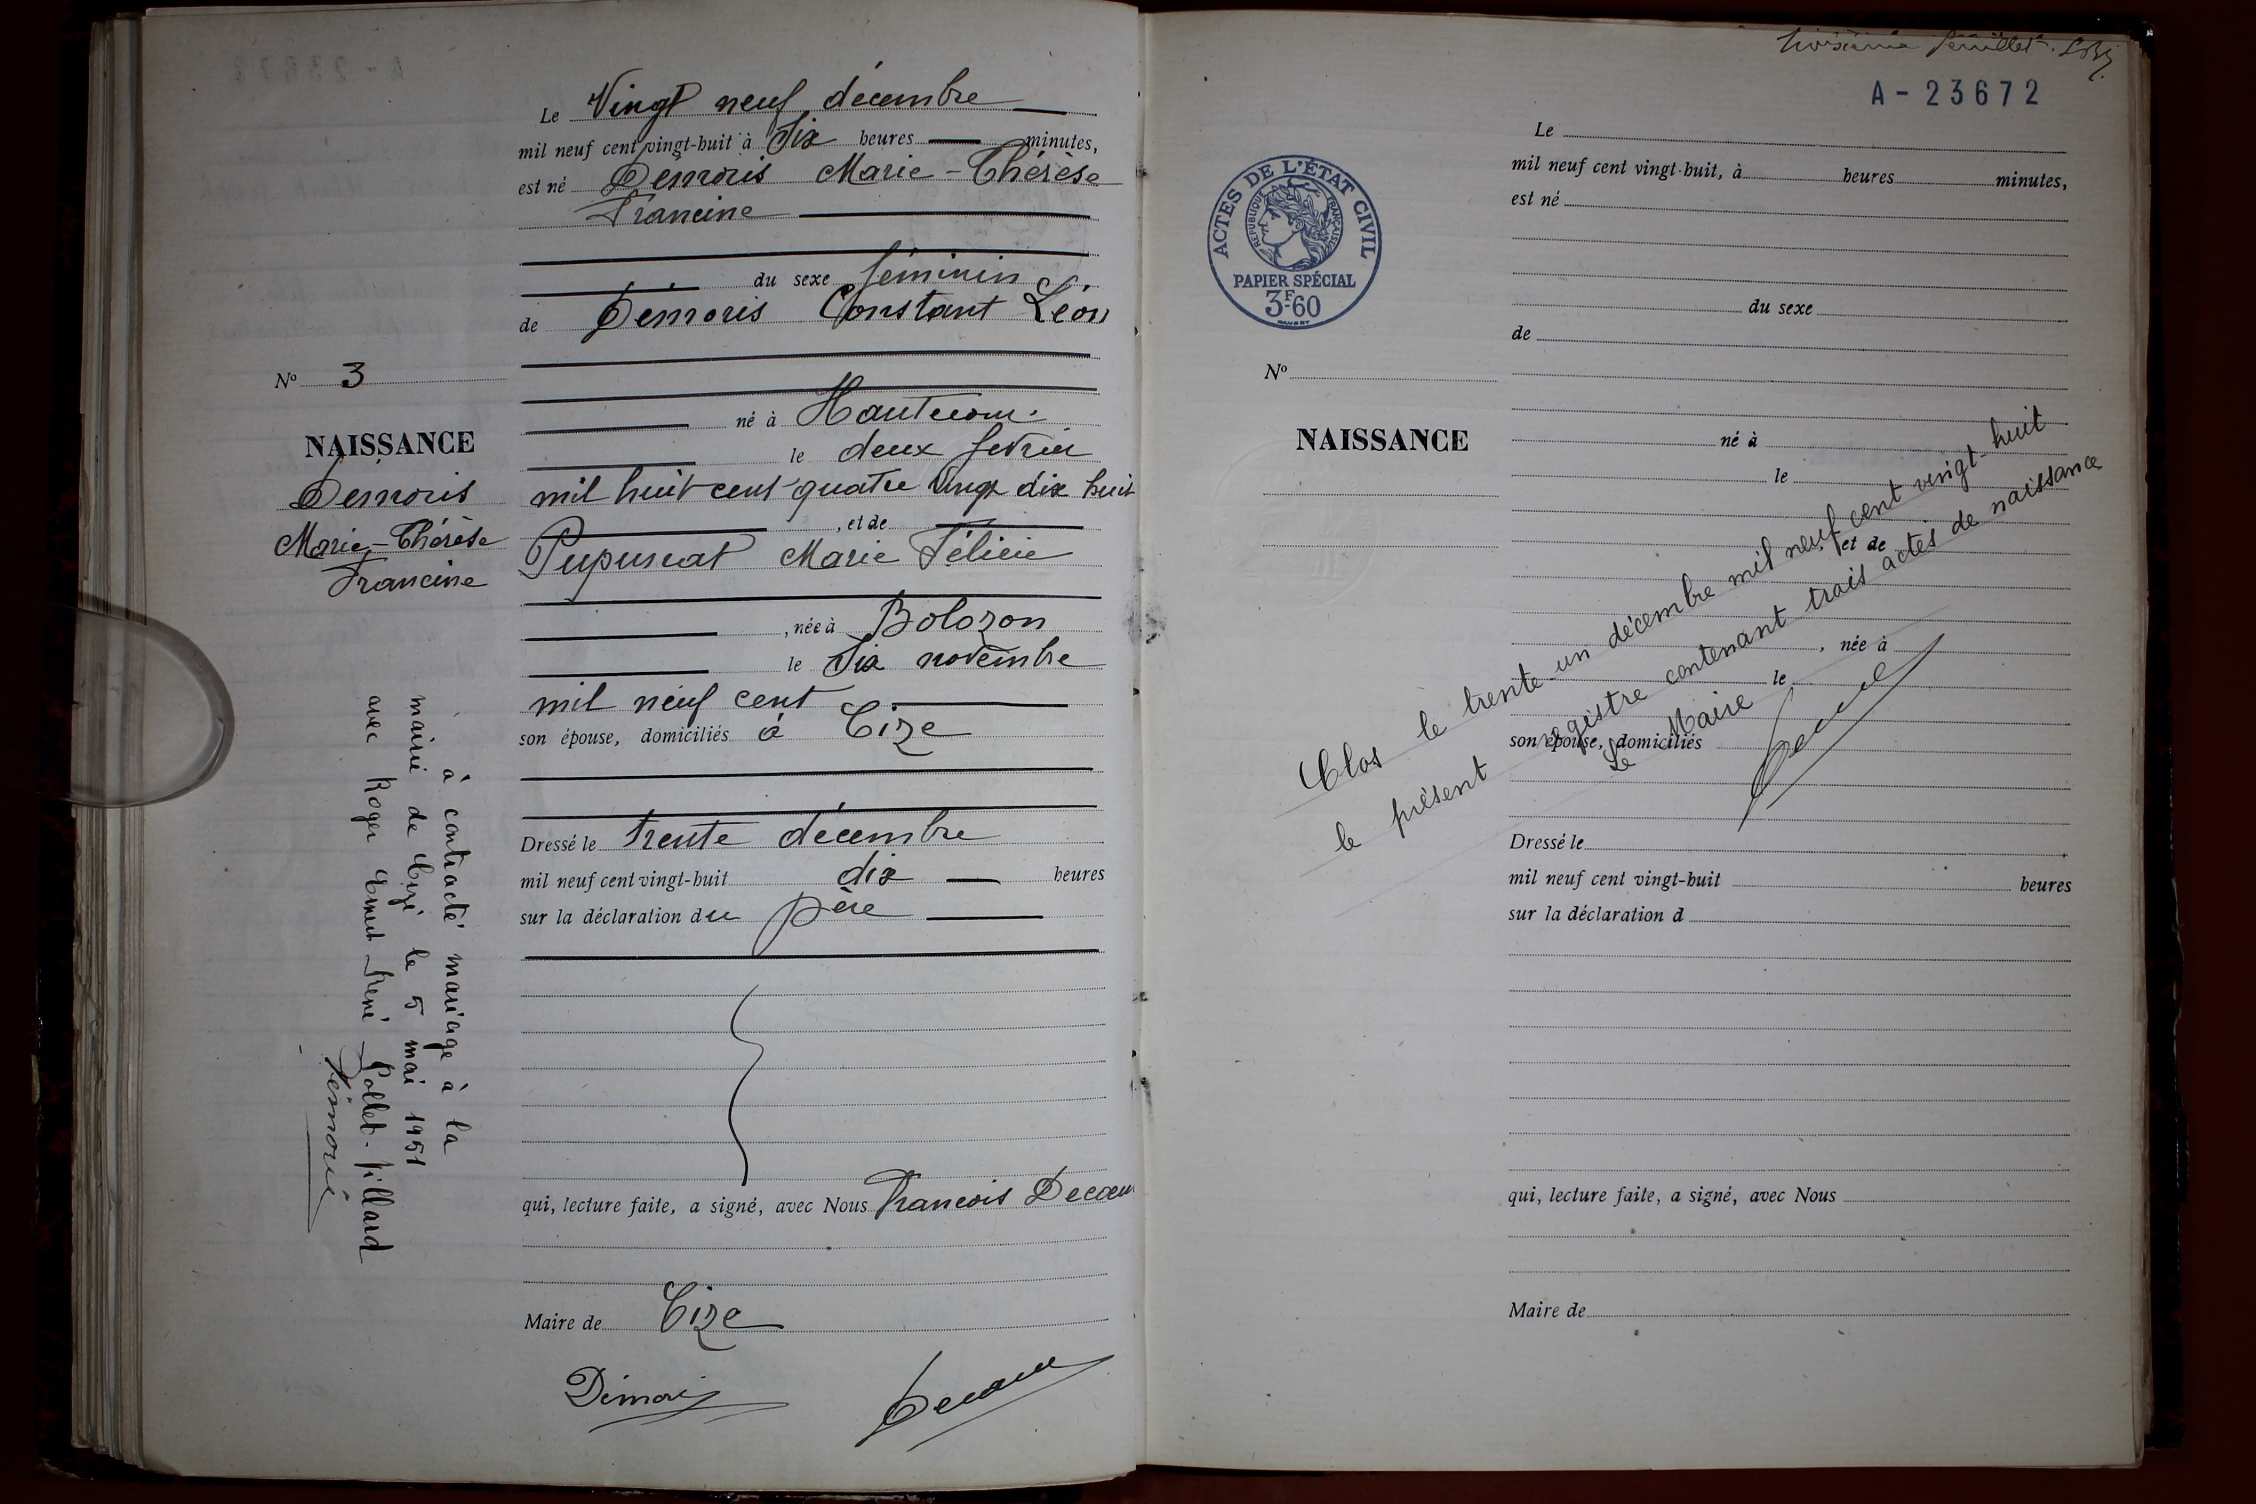 Le Vingt neuf décembre
mil neuf cent vingt-huit à Six heures minutes,
est né Démoris Marie-Thérèse
Francine
du sexe féminin
de Démoris Constant Léon
né à Hautecour
le deux février
mil huit cent quatre vingt dix huit
, et de
Pupuscat Marie Félicie
, née à Bolozon
le Six novembre
mil neuf cent
son épouse, domiciliés à Cize
Dressé le trente décembre
mil neuf cent vingt-huit dix heures
sur la déclaration du père
qui, lecture faite, a signé, avec Nous François Decœur
Maire de Cize
Démoris
Decœur
No 3
NAISSANCE
Démoris
Marie-Thérèse
Francine
à contracté mariage à la
mairie de Cize le 5 mai 1951
avec Roger Ernest René Pollet-Villard
Démoris
troisième feuillet.
A-23672
ACTES DE L'ÉTAT CIVIL
REPUBLIQUE FRANÇAISE
PAPIER SPÉCIAL
3F60
Le
mil neuf cent vingt-huit, à heures minutes,
est né
du sexe
de
No
NAISSANCE
né à
le
, et de
, née à
le
son épouse, domiciliés
Dressé le
mil neuf cent vingt-huit heures
sur la déclaration d
qui, lecture faite, a signé, avec Nous
Maire de
Clos le trente-un décembre mil neuf cent vingt-huit
le présent registre contenant trois actes de naissance
Le Maire
Decœur